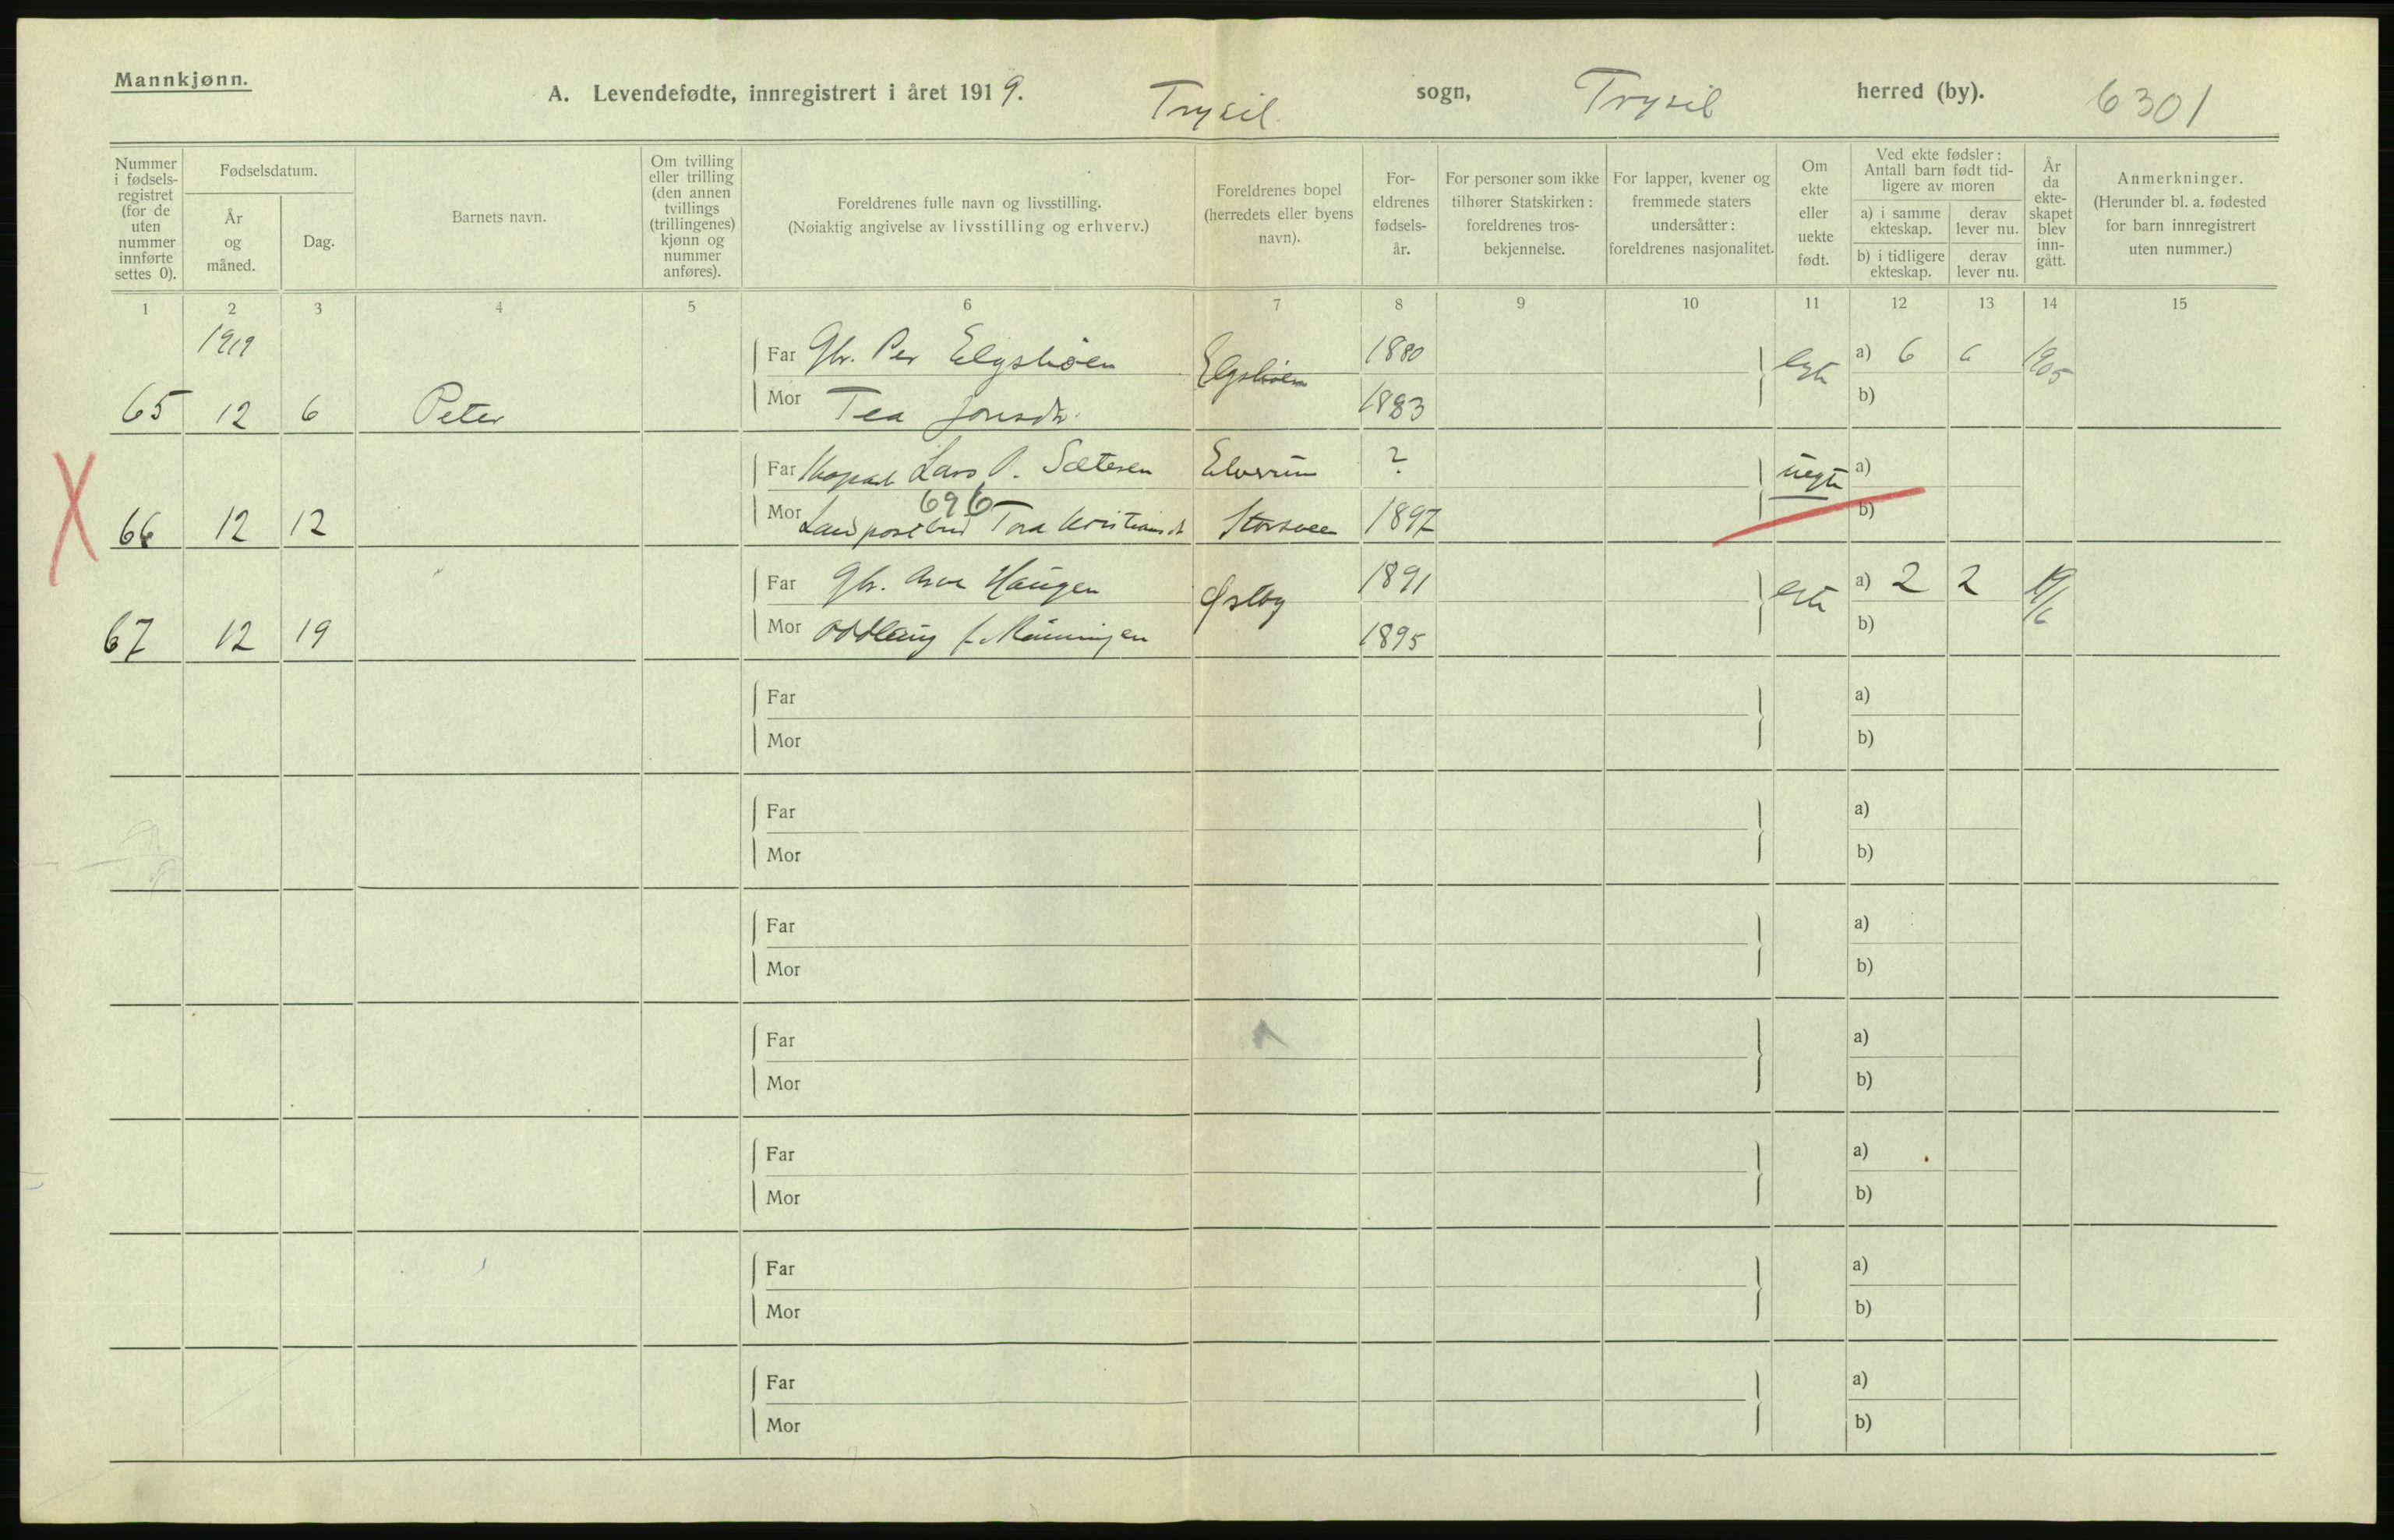 Mannkjønn.
A. Levendefødte, innregistrert i året 1919. Trysil sogn, Trysil herred (by). 6301
Nummer i fødselsregistret (for de uten nummer innførte settes 0).
Fødselsdatum.
År og måned.
Dag.
Barnets navn.
Om tvilling eller trilling (den annen tvillings (trillingenes) kjønn og nummer anføres).
Foreldrenes fulle navn og livsstilling.
(Nøiaktig angivelse av livsstilling og erhverv.)
Foreldrenes bopel (herredets eller byens navn).
Foreldrenes fødselsår.
For personer som ikke tilhører Statskirken: foreldrenes trosbekjennelse.
For lapper, kvener og fremmede staters undersåtter: foreldrenes nasjonalitet.
Om ekte eller uekte født.
Ved ekte fødsler: Antall barn født tidligere av moren
a) i samme ekteskap.
derav lever nu.
b) i tidligere ekteskap.
derav lever nu.
År da ekteskapet blev inngått.
Anmerkninger.
(Herunder bl. a. fødested for barn innregistrert uten nummer.)
1 2 3 4 5 6 7 8 9 10 11 12 13 14 15
1919
Far Gbr. Per Elgshøen Elgshøen 1880 a) 6 6 1905
65 12 6 Peter Mor Tea Jonsdtr. 1883 b)
Far Lars P. Sætersen Elverum ? uegte a)
696
66 12 12 Mor Landpostbud Tora Kristiansdt Storsveen 1897 b)
Far Gbr. Haugen Østby 1891 a) 2 2
67 12 19 Mor Oddlaug f. 1895 b)
Far a)
Mor b)
Far a)
Mor b)
Far a)
Mor b)
Far a)
Mor b)
Far a)
Mor b)
Far a)
Mor b)
Far a)
Mor b)